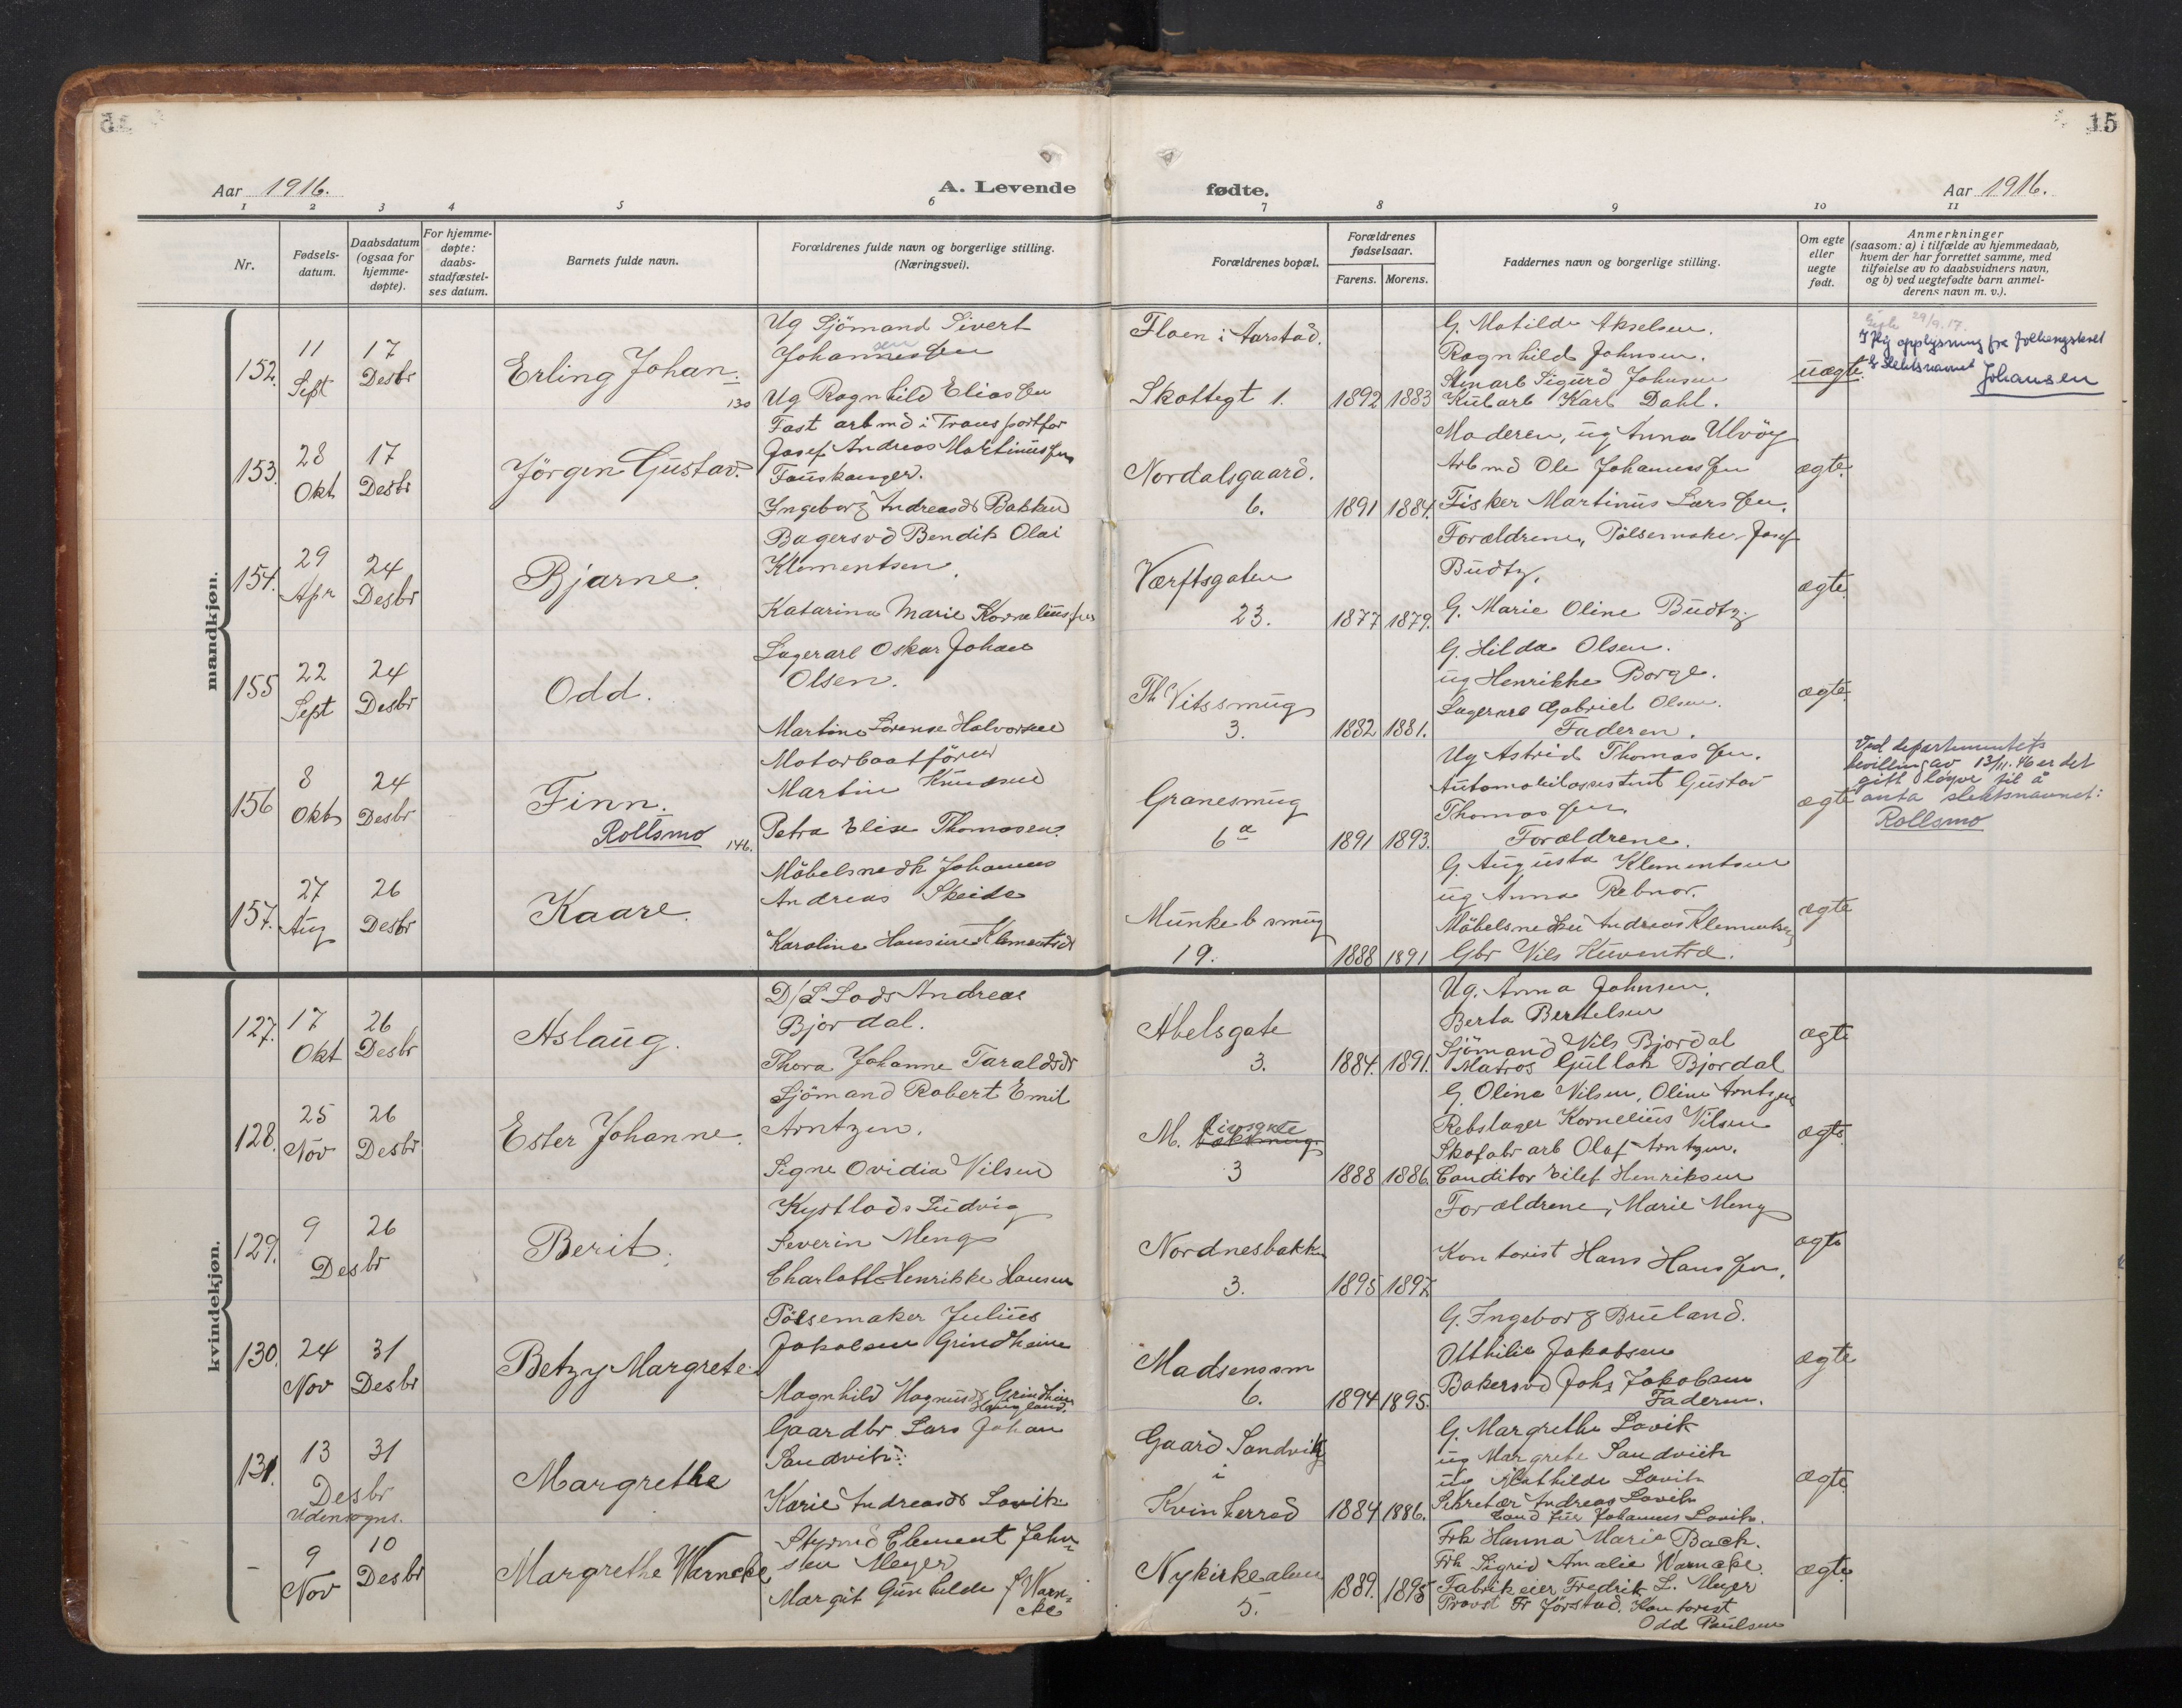 15
Aar 1916.
A. Levende
fødte.
Aar 1916.
1 2 3 4 5 6 7 8 9 10 11
Nr.
Fødsels-
datum.
Daabsdatum
(ogsaa for
hjemme-
døpte).
For hjemme-
døpte:
daabs-
stadfæstel-
ses datum.
Barnets fulde navn.
Forældrenes fulde navn og borgerlige stilling.
(Næringsvei).
Forældrenes bopæl.
Forældrenes
fødselsaar.
Farens. Morens.
Faddernes navn og borgerlige stilling.
Om egte
eller
uegte
født.
Anmerkninger
(saasom: a) i tilfælde av hjemmedaab,
hvem der har forrettet samme, med
tilføielse av to daabsvidners navn,
og b) ved uegtefødte barn anmel-
derens navn m. v.).
mandkjøn.
152.
11
Sept
17
Desbr
Erling Johan.
130
Ug Sjömand Sivert
Johannessen
Ug Ragnhild Eliassen
Floen i Aarstad.
Skottegt 1.
1892 1883
G. Matilde Akselsen.
Ragnhild Johnsen.
Stenarb Sigurd Johnsen
Kularb Karl Dahl.
uægte.
29/9.17.
Johansen
153.
28
Okt
17
Desbr
Jörgen Gustav.
Fast arbmd i Transportfor
Josef Andreas Martinussen
Fauskanger.
Ingeborg Andreasdr Bakken
Nordalsgaard.
6.
1891 1884.
Moderen, ug Anna Ulvöy
Arbmd Ole Johannessen
Fisker Martinus Larssen.
ægte.
154.
29
Apr
24
Desbr
Bjarne.
Bagersvd Bendik Olai
Klementsen.
Katarina Marie Korneliussen
Værftsgaten
23.
1877 1879.
Forældrene, Pölsemaker Josef
Budtz.
G. Marie Oline Budtz
ægte.
155
22
Sept
24
Desbr
Odd.
Lagerarb Oskar Johan
Olsen.
Martine Lorense Halvorsen
Th Vitssmug
3.
1882 1881.
G. Hilda Olsen.
ug Henrikke Borge.
Lagerarb Gabriel Olsen.
Faderen.
ægte.
156
8
Okt
24
Desbr
Finn.
Rollsmo
146.
Motorbaatförer
Martin Knudsen
Petra Elise Thomasen.
Granesmug
6 a
1891 1893.
Ug Astrid Thomassen.
Automobilassistent Gustav
Thomassen.
Forældrene.
ægte
Ved departementets
bevilling av 13/11.46 er det
gitt løyve til å
anta slektsnavnet:
Rollsmo
157.
27
Aug
26
Desbr
Kaare.
Möbelsnedk Johannes
Andreas Skeide
Karoline Hansine Klementsdr
Munkeb smug
19.
1888 1891
G. Augusta Klementsen
ug Anna Rebnor.
Möbelsnedker Andreas Klementsen
Gbr Nils Kuventræ.
ægte
kvindekjøn.
127.
17
Okt
26
Desbr
Aslaug.
D/S Lods Andreas
Bjordal.
Thora Johanne Taraldsdr
Abelsgate
3.
1884. 1891.
Ug. Anna Johnsen.
Berta Bertelsen
Sjömand Nils Bjordal
Matros Gullak Bjordal
ægte
128.
25
Nov
26
Desbr
Ester Johanne.
Sjömand Robert Emil
Arntzen.
Signe Ovidia Nilsen
M.
3
1888 1886.
G. Oline Nilsen, Oline Arntzen
Rebslager Kornelius Nilsen
Skofabr arb Olaf Arntzen.
Conditor Eilef Henriksen
ægte.
129.
9
26
Desbr
Berit.
Kystlods Ludvig
Severin Meng
Charlotte Henrikke Hansen
Nordnesbakk
3.
1895 1897
Forældrene, Marie Meng
Kontorist Hans Hanssen.
ægte
130.
24
Nov
31
Desbr
Betzy Margrete.
Pölsemaker Julius
Jakobsen Grindheim
Magnhild Magnusdr Grindheim
Haugland.
Madsenssm
6.
1894 1895.
G. Ingeborg Bruland.
Otthilie Jakobsen
Bakersvd Johs Jakobsen
Faderen.
ægte
131.
13
31
Desbr
Udensogns.
Margrethe
Gaardbr Lars Johan
Sandvik.
Karie Andreasdr Lavik
Gaard Sandvik
i
Kvinherred
1884 1886.
G. Margrethe Lavik
ug Margrete Sandvik
ug Mathilde Lavik
Sekretær Andreas Lavik
Cand jur Johannes Lavik.
ægte
–
9
Nov
10
Desbr
Margrethe Warncke
Styrmd Clement John-
sen Meyer
Margit Gunhilde f Warn-
cke
Nykirkealm
5.
1889. 1895
Frk Hanna Marie Back.
Frk Sigrid Amalie Warncke.
Fabrikeier Fredrik L. Meyer
Provst Fr Jörstad. Kontorist
Odd Paulsen
ægte